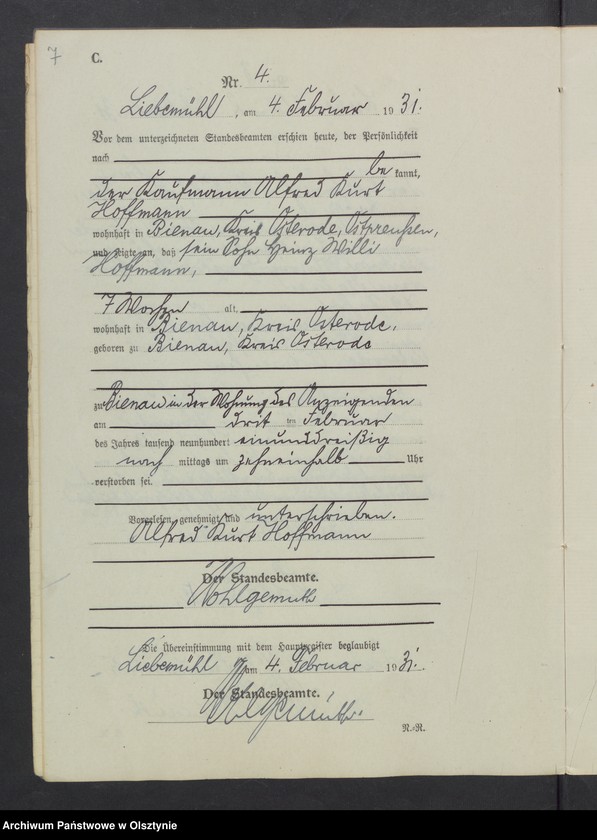 7
C.
Nr. 4.
Liebemühl, am 4. Februar 1931.
Vor dem unterzeichneten Standesbeamten erschien heute, der Persönlichkeit
nach
be kannt,
der Kaufmann Alfred Kurt
Hoffmann
wohnhaft in Bienau, Kreis Osterode, Ostpreußen,
und zeigte an, daß sein Sohn Heinz Willi
Hoffmann,
7 Wochen alt,
wohnhaft in Bienau, Kreis Osterode,
geboren zu Bienau, Kreis Osterode
zu Bienau in der Wohnung des Anzeigenden
am drit ten Februar
des Jahres tausend neunhundert einunddreißig
nach mittags um zehneinhalb Uhr
verstorben sei.
Vorgelesen, genehmigt und unterschrieben.
Alfred Kurt Hoffmann
Der Standesbeamte.
Wohlgemuth
Die Übereinstimmung mit dem Hauptregister beglaubigt
Liebemühl, am 4. Februar 1931.
Der Standesbeamte.
Wohlgemuth.
R.-R.
Archiwum Państwowe w Olsztynie